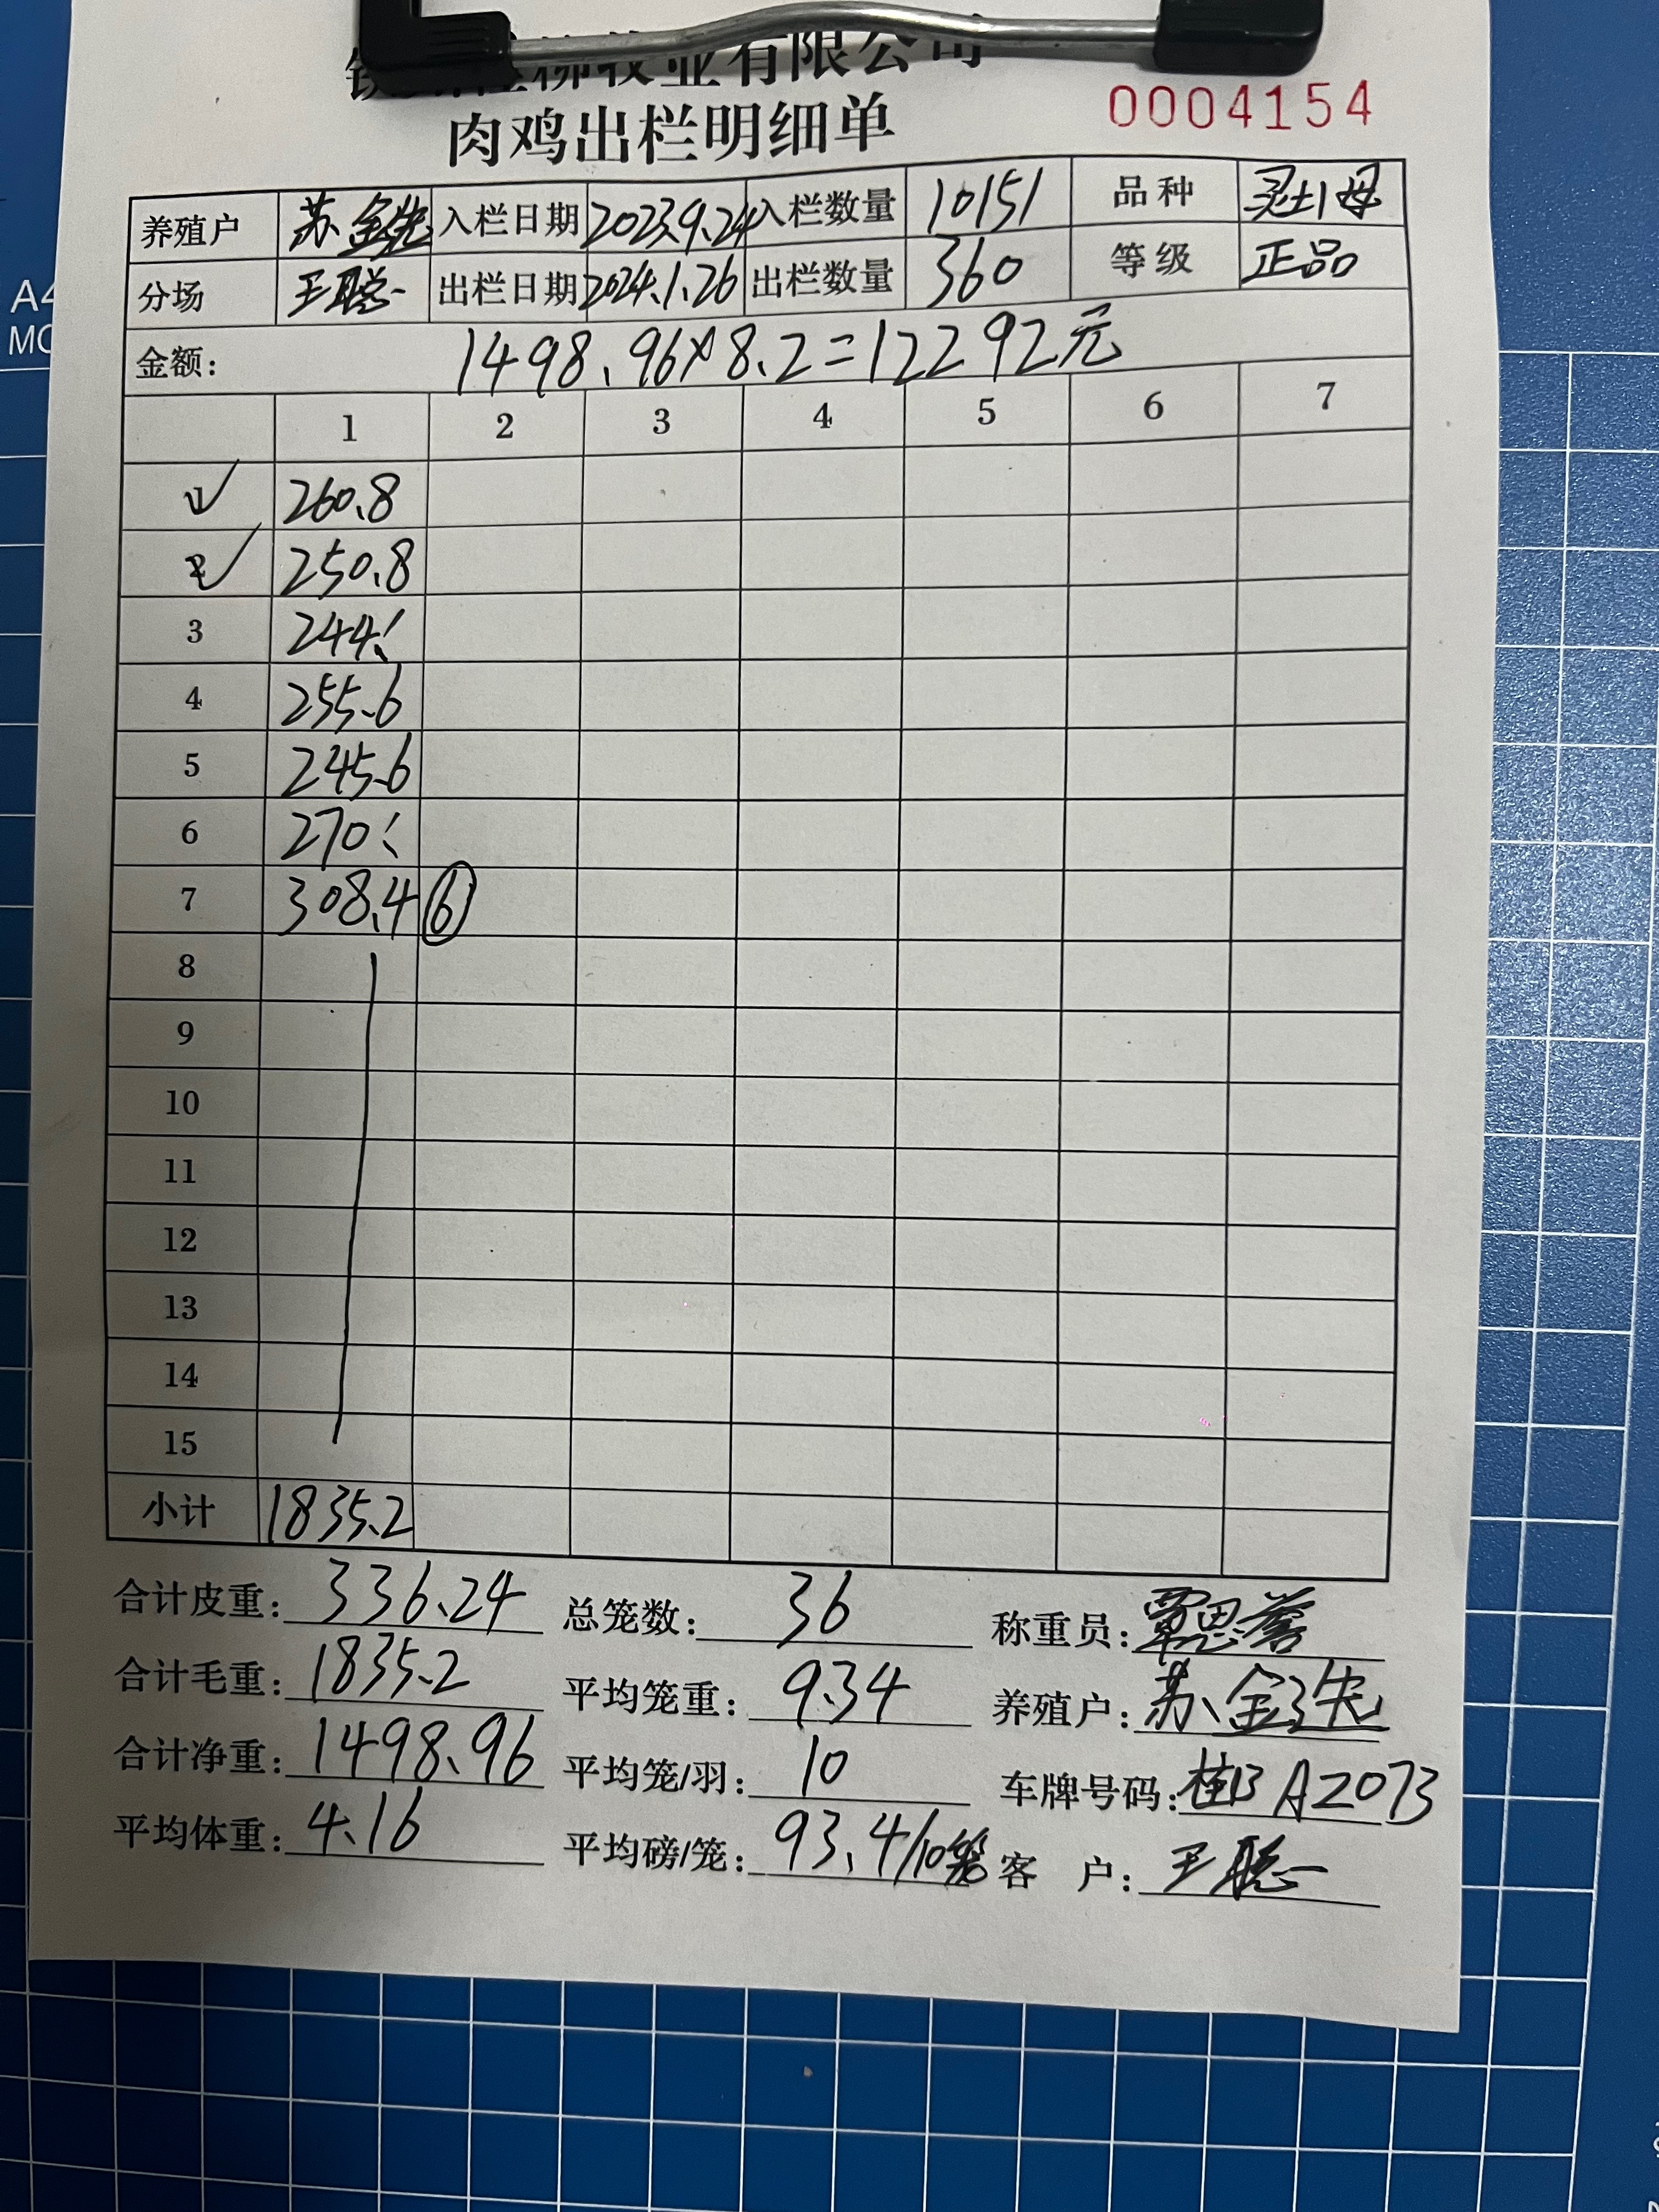 牧业有限公司
肉鸡出栏明细单 0004154
养殖户 苏金先 入栏日期 2023.9.24 入栏数量 10151 品种 灵土1母
分场 王聪 出栏日期 2024.1.26 出栏数量 360 等级 正品
金额: 1498.96×8.2=12292元
1 2 3 4 5 6 7
1 260.8
2 250.8
3 244.
4 255.6
5 245.6
6 270.
7 308.4 ⑥
8
9
10
11
12
13
14
15
小计 1835.2
合计皮重: 336.24 总笼数: 36 称重员: 覃思
合计毛重: 1835.2 平均笼重: 9.34 养殖户: 苏金先
合计净重: 1498.96 平均笼/羽: 10 车牌号码: 桂B A2073
平均体重: 4.16 平均磅/笼: 93.4/10笼 客户: 王聪
A4